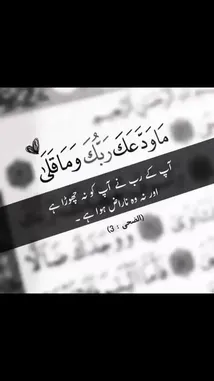 مَا وَدَّعَكَ رَبُّكَ وَمَا قَلَىٰ
آپ کے رب نے آپ کو نہ چھوڑا ہے
اور نہ وہ ناراض ہوا ہے ۔
(الضحى : 3)